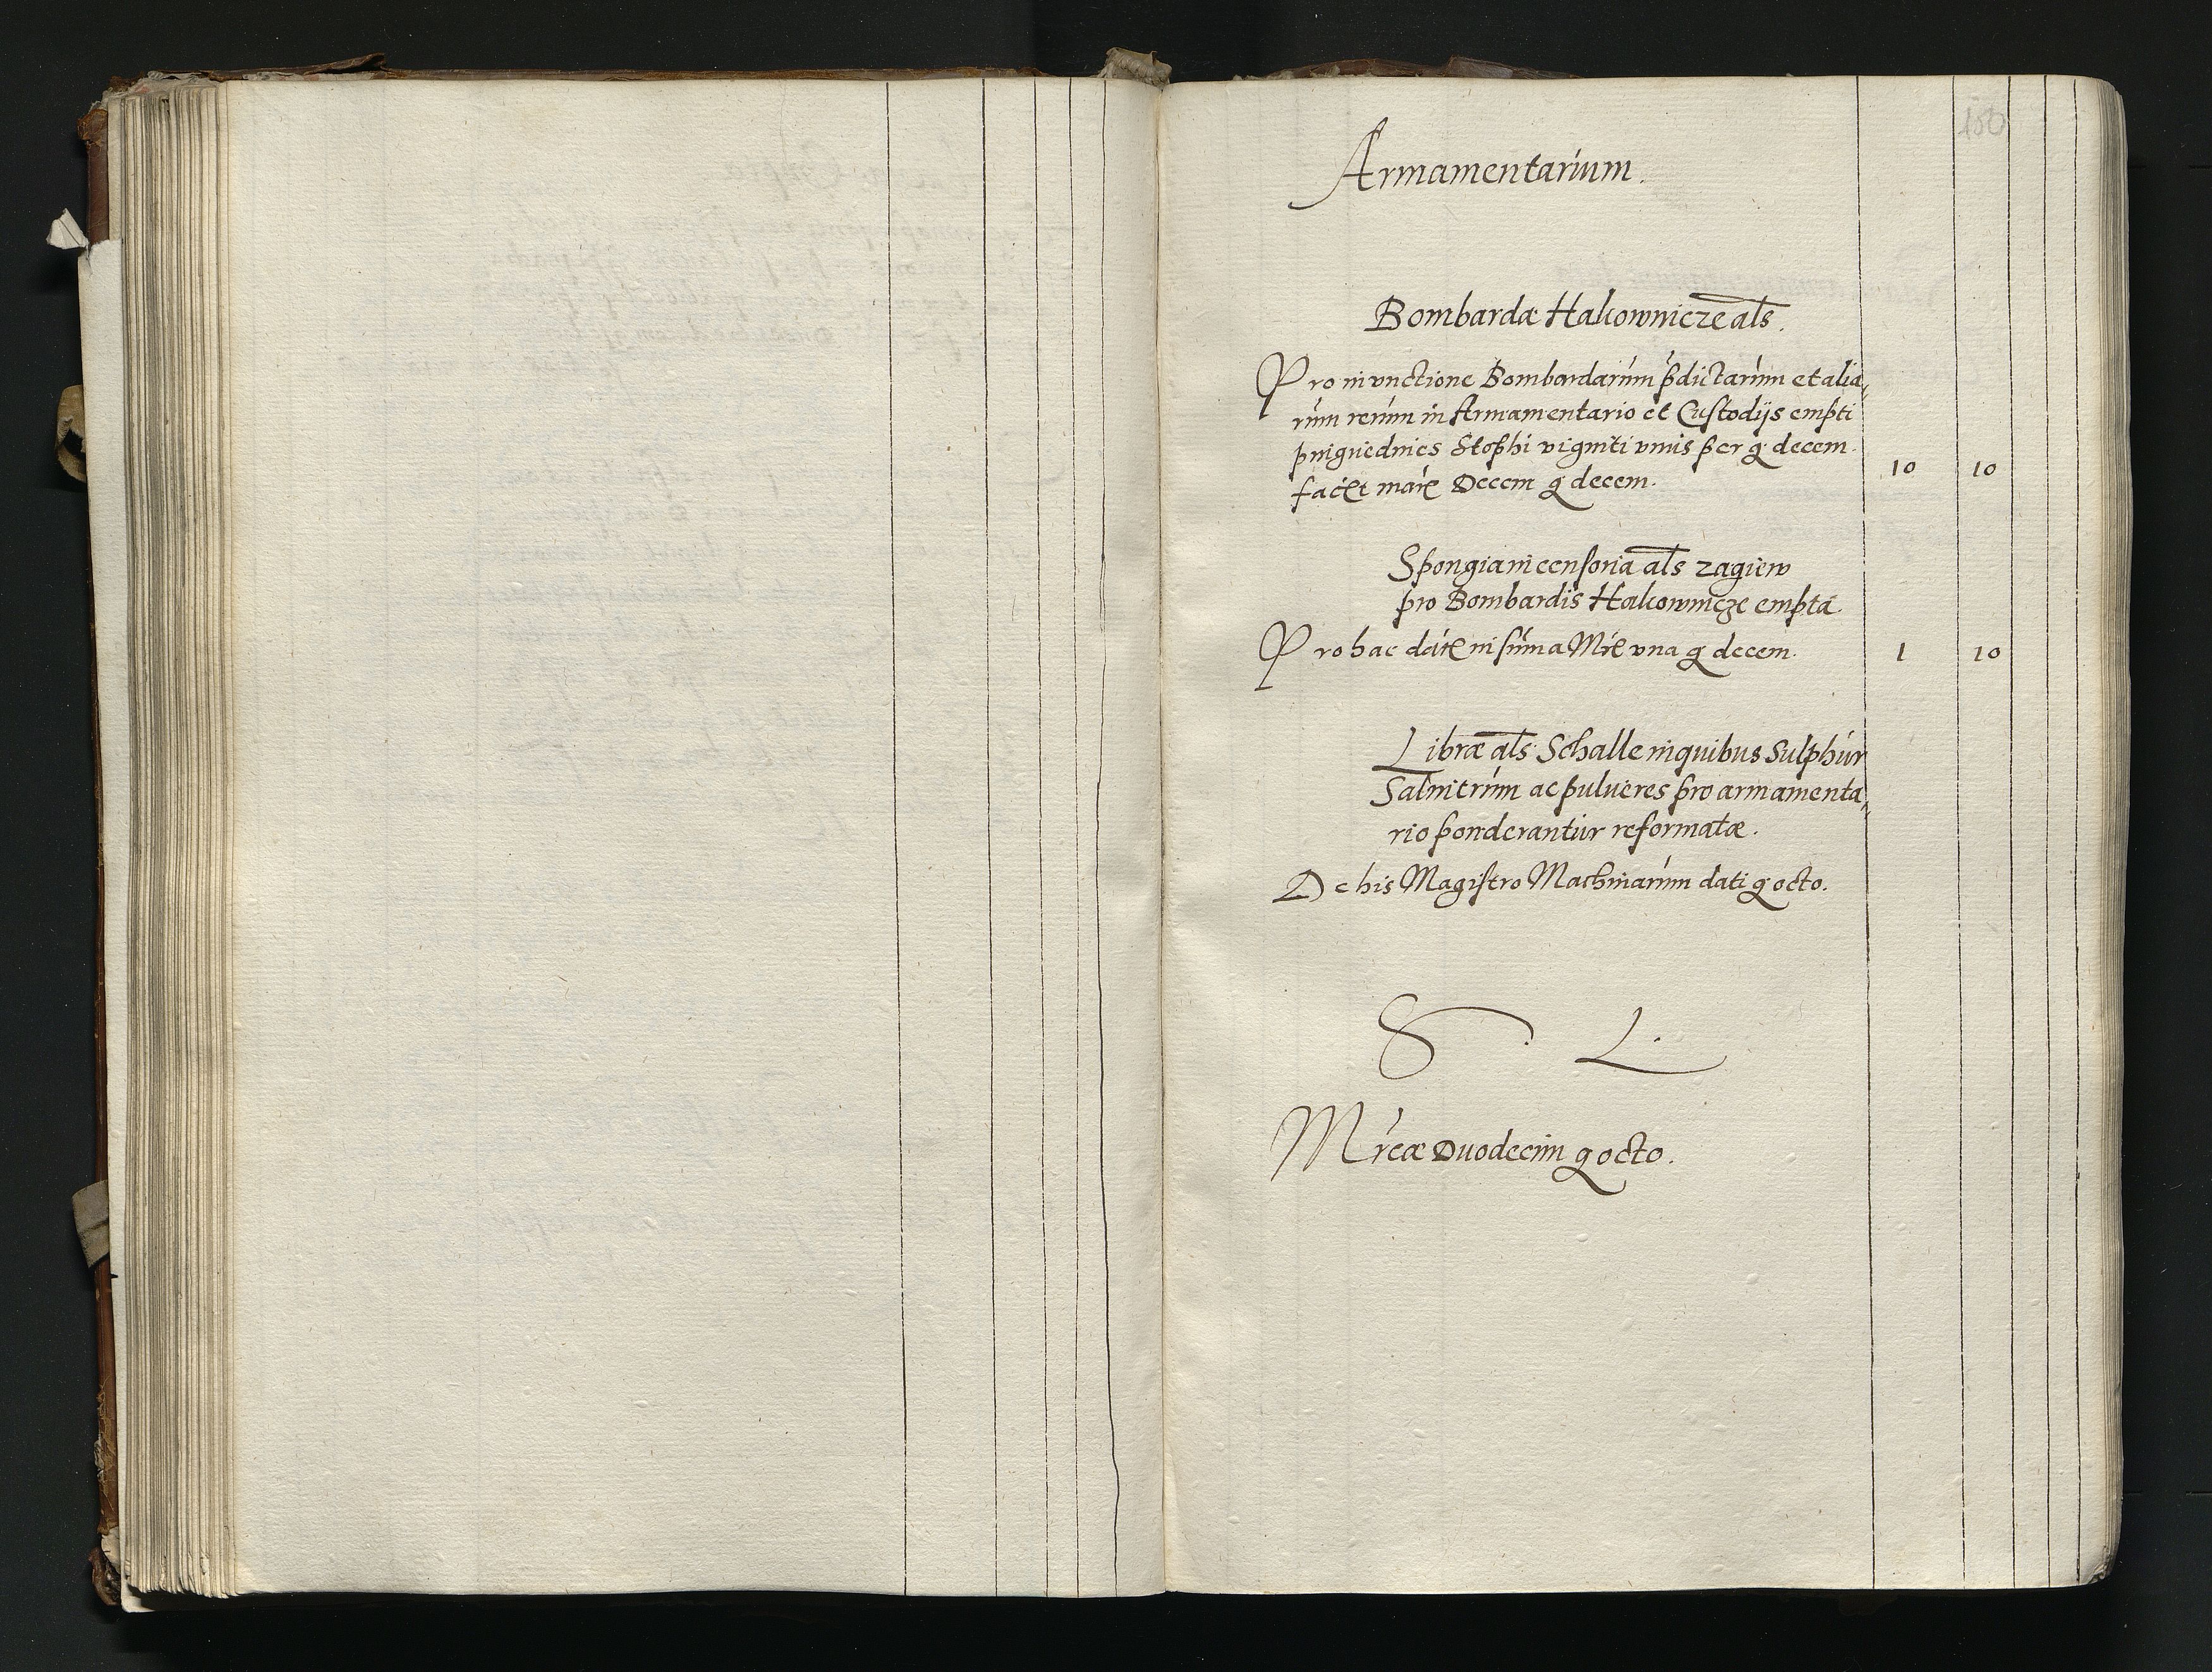 150
Armamentarium.
Bombardæ Hakownicze als.
Pro inunctione Bombardarum pdictarum et alia,
rum rerum in Armamentario et Custodijs empti
pinguedines Stophi viginti unus per g decem.
faciet marce Decem g decem.
10 10
Spongia incensoria als zagiew
pro Bombardis Hakownicze empta.
Pro hac date in suma Mrce vna g decem.
1 10
Libræ als Schalle in quibus Sulphur
Salnitrum ac pulueres pro armamenta,
rio ponderantur reformatæ.
De his Magistro Machinarum dati g octo.
S. L.
Mrcæ Duodecim g octo.